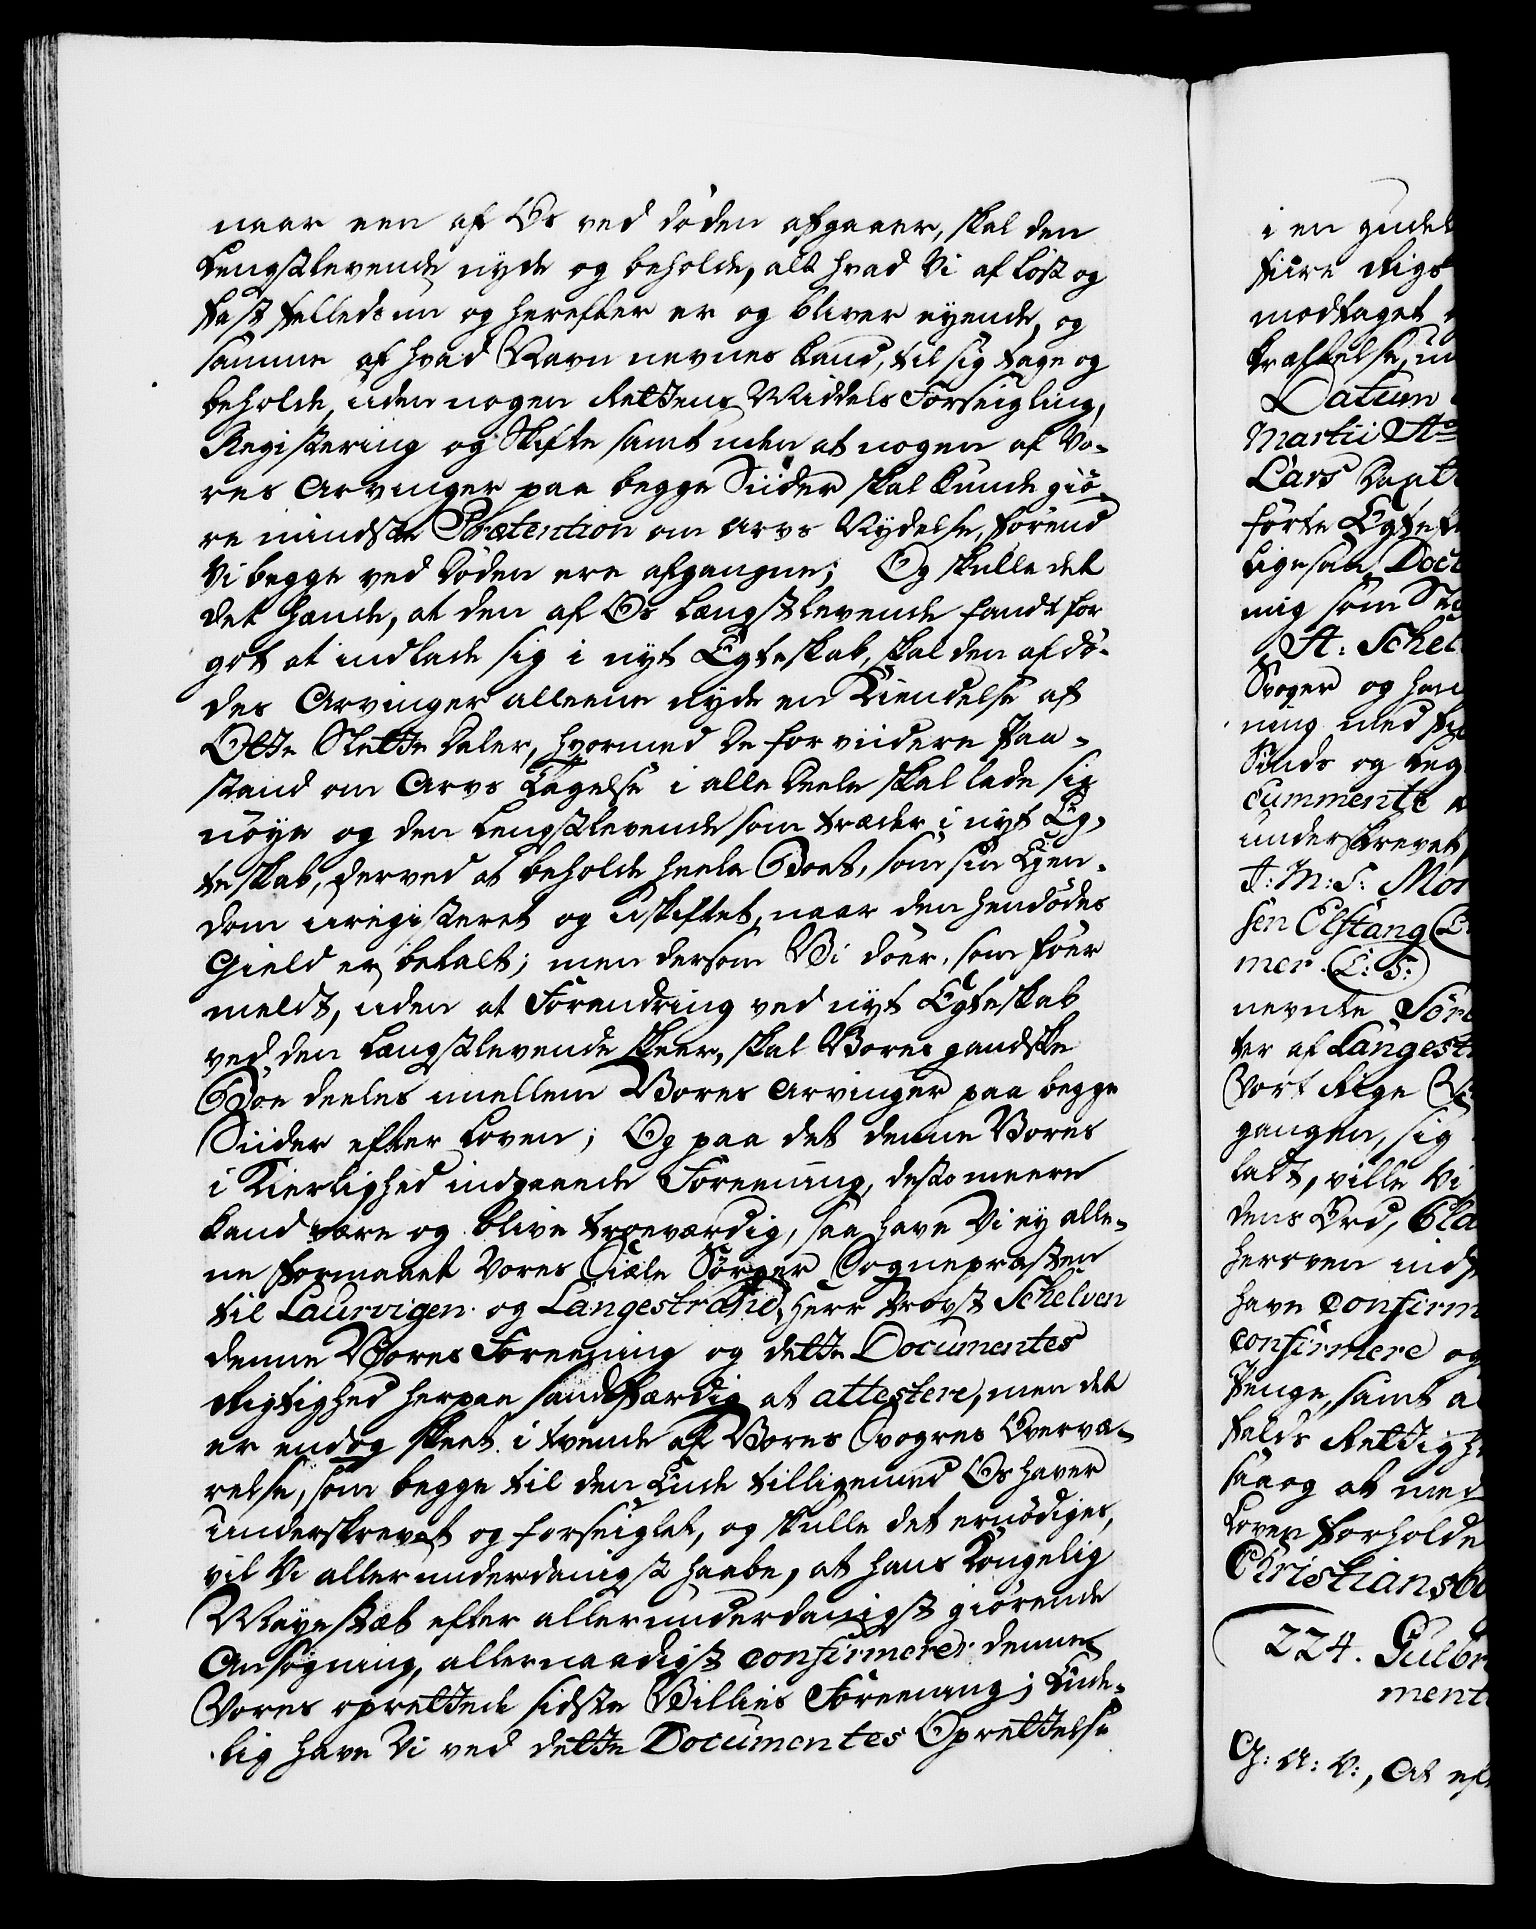 naar een af Os ved døden afgaaer, skal den
Lengstlevende nyde og beholde, alt hvad Vi af løst og
fast felleds nu og herefter er og bliver eyende, og
samme af hvad Navn nevnes kand, til sig tage og
beholde, uden nogen Rettens Middels Forseigling,
Registering og Skifte samt uden at nogen af Vo-
res Arvinger paa begge Siider skal kunde giö-
re mindste Prætention om Arvs Nydelse, förend
Vi begge ved Döden ere afgangne; Og skulle det
det hænde, at den af Os Længstlevende fandt for
got at indlade sig i nyt Egteskab, skal den afdö-
des Arvinger alleene nyde en Kiendelse af
Otte Slette Daler, hvormed De for viidere Paa-
stand om Arvs Tagelse i alle Deele skal lade sig
nöye og den Lengstlevende som træder i nyt Eg-
teskab, derved at beholde heele Boet, som sin Ejen-
dom uregisteret og uskiftet, naar den hendödes
Gield er betalt; men dersom Vi döer, som föer
meldt, uden at Forandring ved nyt Egteskab
ved den Længstlevende skeer, skal Vores gandske
Boe deeles imellem Vores Arvinger paa begge
Siider efter Loven; Og paa det denne Vores
i Kierlighed indgaaende Foreening, desto meere
kand være og blive troeværdig, saa have Vi ey alle-
ne formaaet Vores Siæle Sörger Sognepræsten
til Laurvigen og Langestrand, Herr Provst Schelven
denne Vores Foreening og dette Documentes
Rigtighed herpaa sandfærdig at attestere, men det
er endog skeet i tvende af Vores Svogres Overvæ-
relse, som begge til den Ende tilligemed Os haver
underskrevet og forseiglet, og skulle det ernödiges,
vil Vi allerunderdanigst haabe, at hans Kongelig
Mayestæt efter allerunderdanigst giörende
Ansögning, allernaadigst confirmerer denne
Vores oprettede sidste Villies Foreening; Ende-
lig have Vi ved dette Documentes Oprettelse
i en gudel
fiire Rigs
modtaget
kræftelse, un
Datum
Martii Ao
Lars
förte Egtef
ligesaa Docu
mig som Se
A: Schel
Svoger og han
ning med
Sinds og
cumment
underskrevet,
J: M: S: Mor
sen Elstang
mer. L: S:
nevnte Sör
ter af Langest
Vort Rige
gangen, sig
ladt, ville Vi
dens Ord,
hersven inds
have confirm
confirmere og
Penge, samt a
falds Rettigh
saa og at med
Loven forholde
Christiansbo
224. Gulbr
ment
G: A: V:, At eft